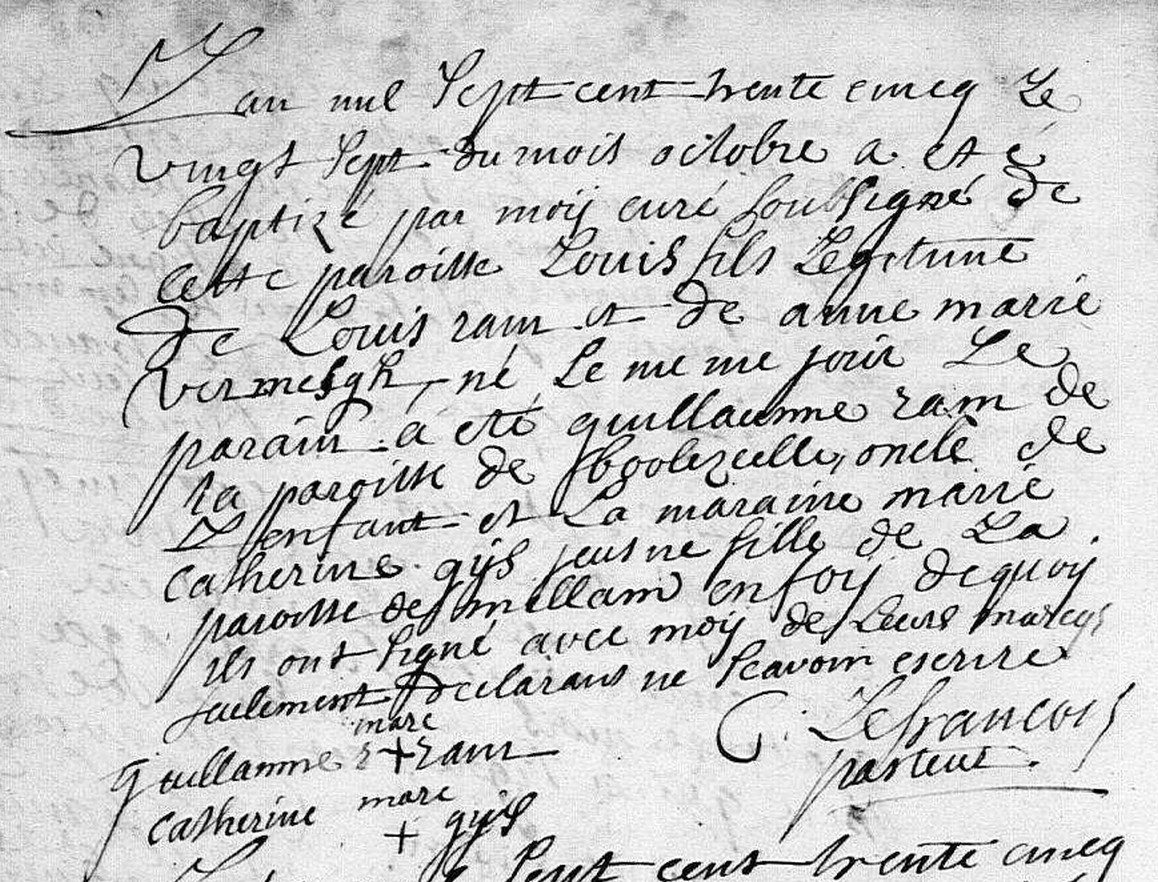 L an mil sept cent trente cincq Le
vingt sept du mois octobre a eté
baptizé par moij curé soubsigné de
cette paroisse Louis fils Legitime
de Louis ram et de anne marie
vermesgh, né Le meme jour Le
parain a eté guillaumme ram de
La paroisse de bbolezeelle, oncle de
L enfant et La maraine marie
Catherine gijs jeusne fille de La
paroisse de millam en foij dequoij
ils ont signé avec moij de Leurs marcqs
seulement declarans ne scavoir escrire
marc
guillamme + ram
C. Lefrancois
pasteur.
marc
Catherine + gijs
sept cent trente cincq